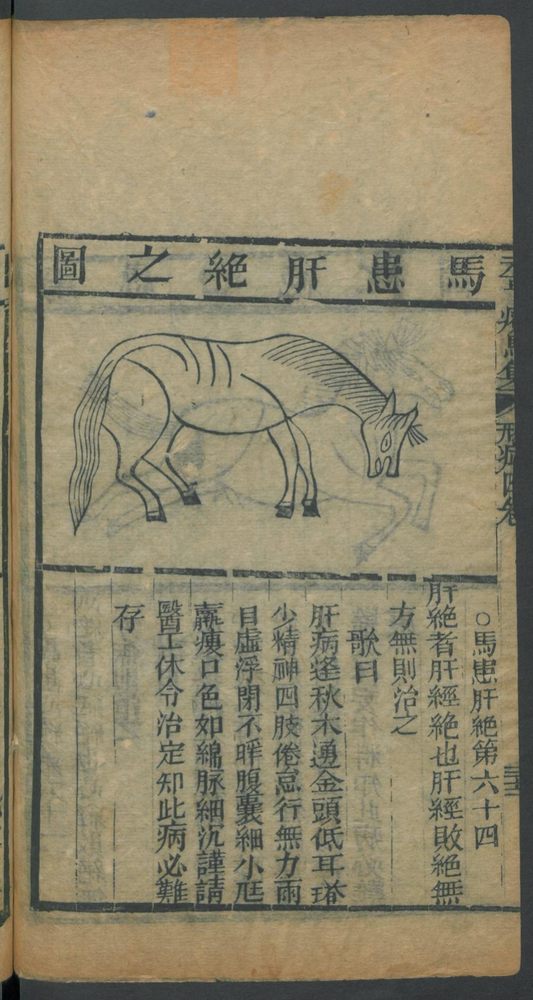 馬患肝絶之圖
○馬患肝絶第六十四
肝絶者肝經絶也肝經敗絶無
方無則治之
歌曰
肝病逢秋木遇金頭低耳搭
少精神四肢倦怠行無力兩
目虛浮閉不睜腹囊細小尫
羸瘦口色如綿脉細沉謹請
醫工休令治定知此病必難
存